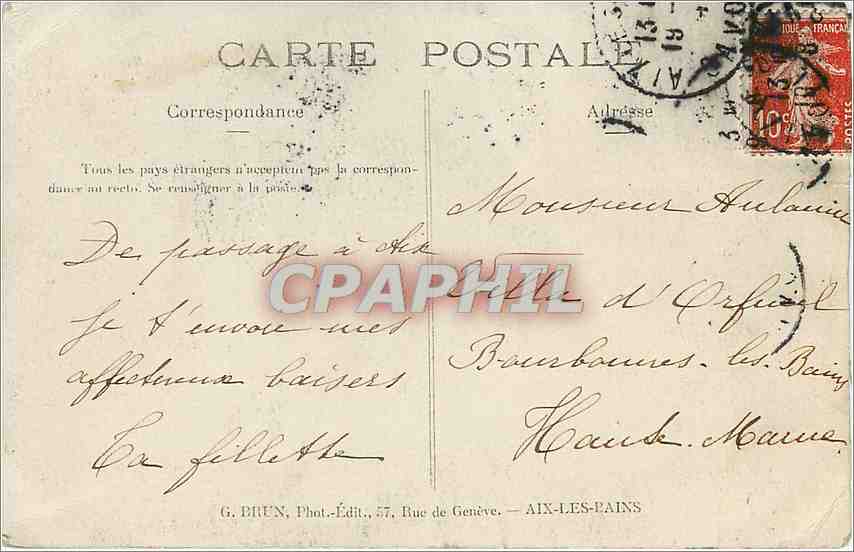 CARTE POSTALE
Correspondance
Adresse
Tous les pays étrangers n'acceptent pas la correspon-
dance au recto. Se renseigner à la poste.
De passage à Aix
je t'envoie mes
affectueux baisers
Ta fillette
Monsieur
Villa d'Orfeuil
Bourbonnes-les-Bains
Haute-Marne
G. BRUN, Phot.-Édit., 57, Rue de Genève. — AIX-LES-BAINS
CPAPHIL
10c
POSTES